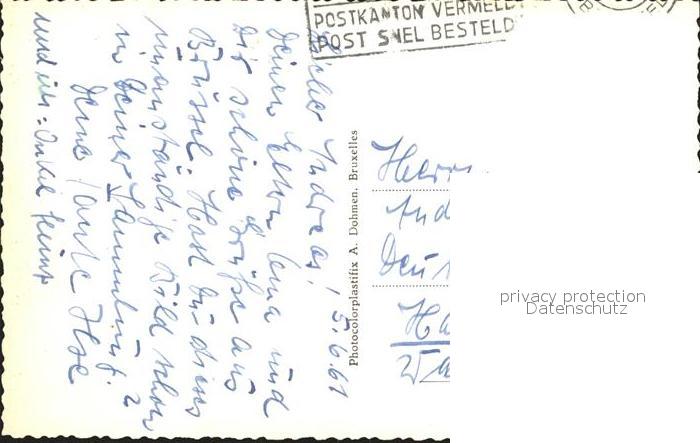 POSTKANTON VERMELD
POST SNEL BESTELD
Lieber Andreas! 5.6.61
Deinen Eltern und
Dir schöne Grüße aus
Brüssel. Hast Du dieses
unanständige Bild schon
in Deiner Sammlung?
Deine Tante Ilse
und ein: Onkel Heinz
Photocolorplastifix A. Dohmen, Bruxelles
Herrn
And
Deu
Ha
privacy protection
Datenschutz